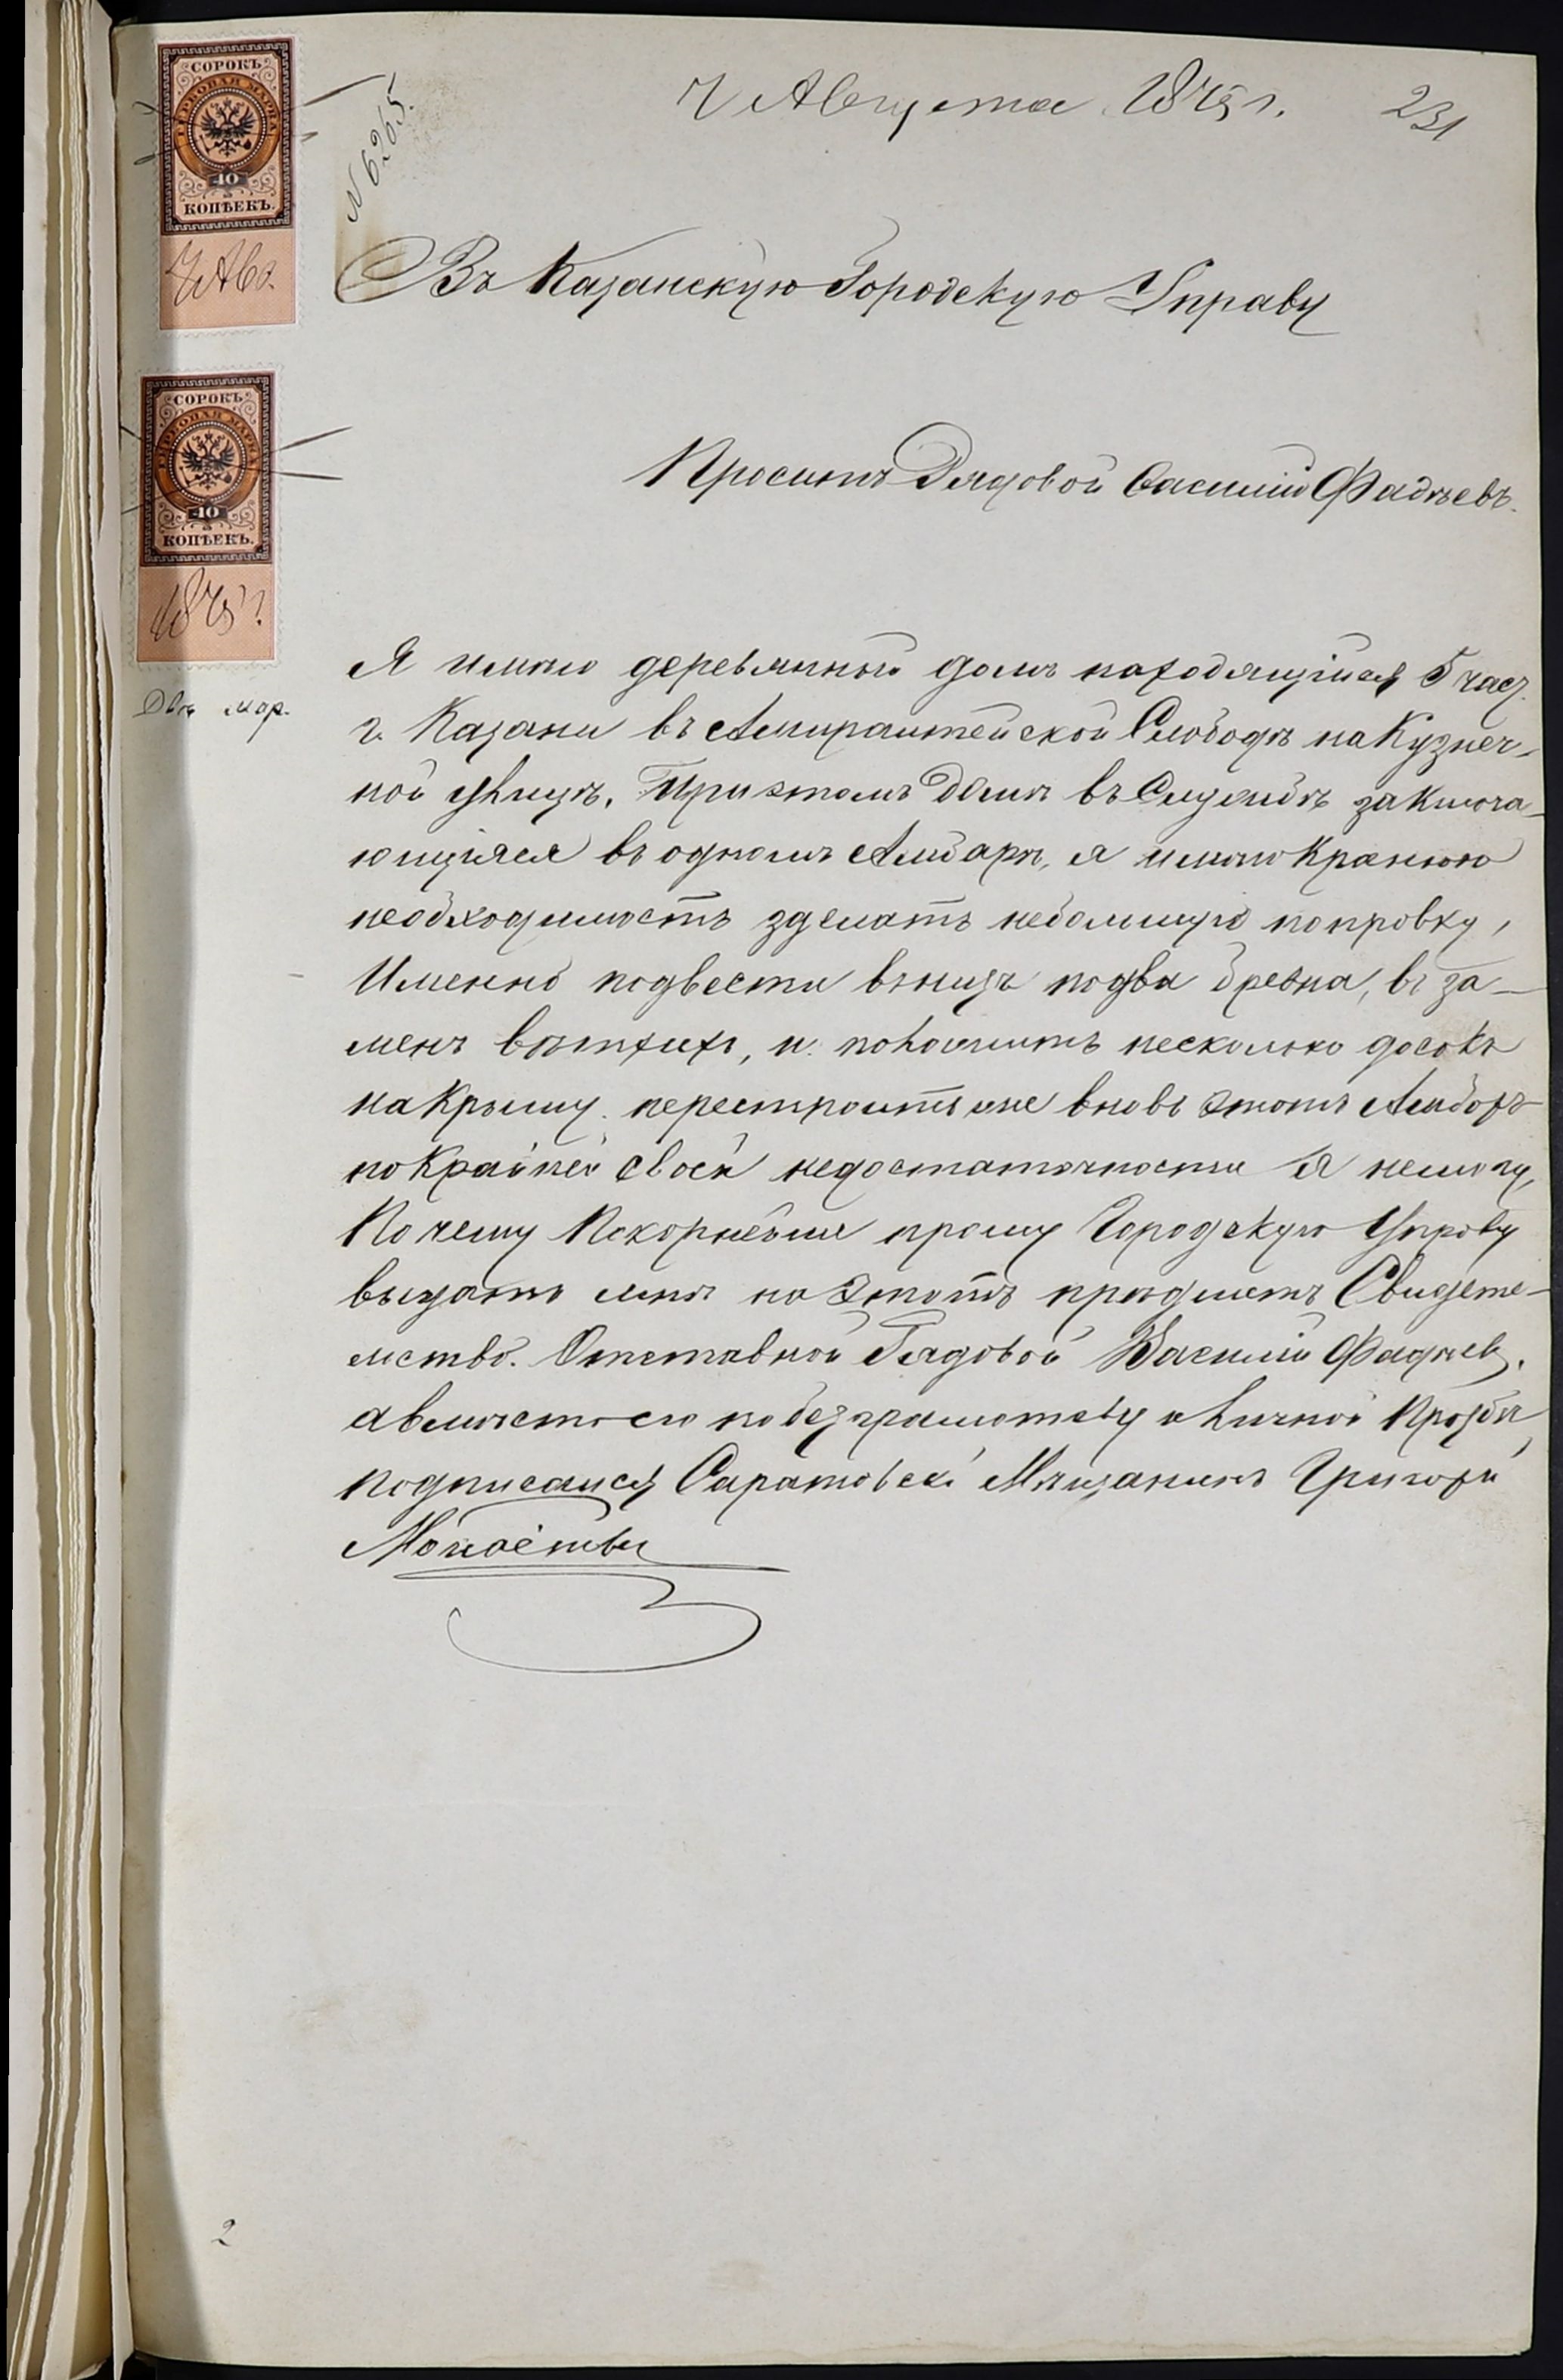 СОРОКЪ
ГЕРБОВАЯ МАРКА
40
КОПѢЕКЪ.
7 Авг.
СОРОКЪ
ГЕРБОВАЯ МАРКА
40
КОПѢЕКЪ.
1875 г
Двѣ мар.
N 6265.
7 Августа 1875 г.
231
Въ Казанскую Городскую Управу
Проситъ Рядовой Василій Фадѣевъ.
Я имѣю деревянной домъ находящійся 5 част.
г. Казани въ Адмиралтейской Слободѣ на Кузнеч-
ной улицѣ. При этомъ домѣ въ Службѣ заключа-
ющіяся въ одномъ Амбарѣ, я имѣю крайнюю
необходимость зделать небольшую поправку,
Именно подвести внизъ по два бревна, въ за-
менъ ветхихъ, и положить несколько досокъ
на крышу. перестроить же вновь этотъ Амбаръ
по крайней своей недостаточности я не могу,
По чему Покорнейше прошу Городскую Управу
выдать мнѣ на этотъ прѣдметъ Свидете-
льство. Отставной Рядовой Василій Фадѣев.
а вмѣсто его по безграмотству и личной прозбѣ
подписался Саратовскі Мѣщанинъ Григори